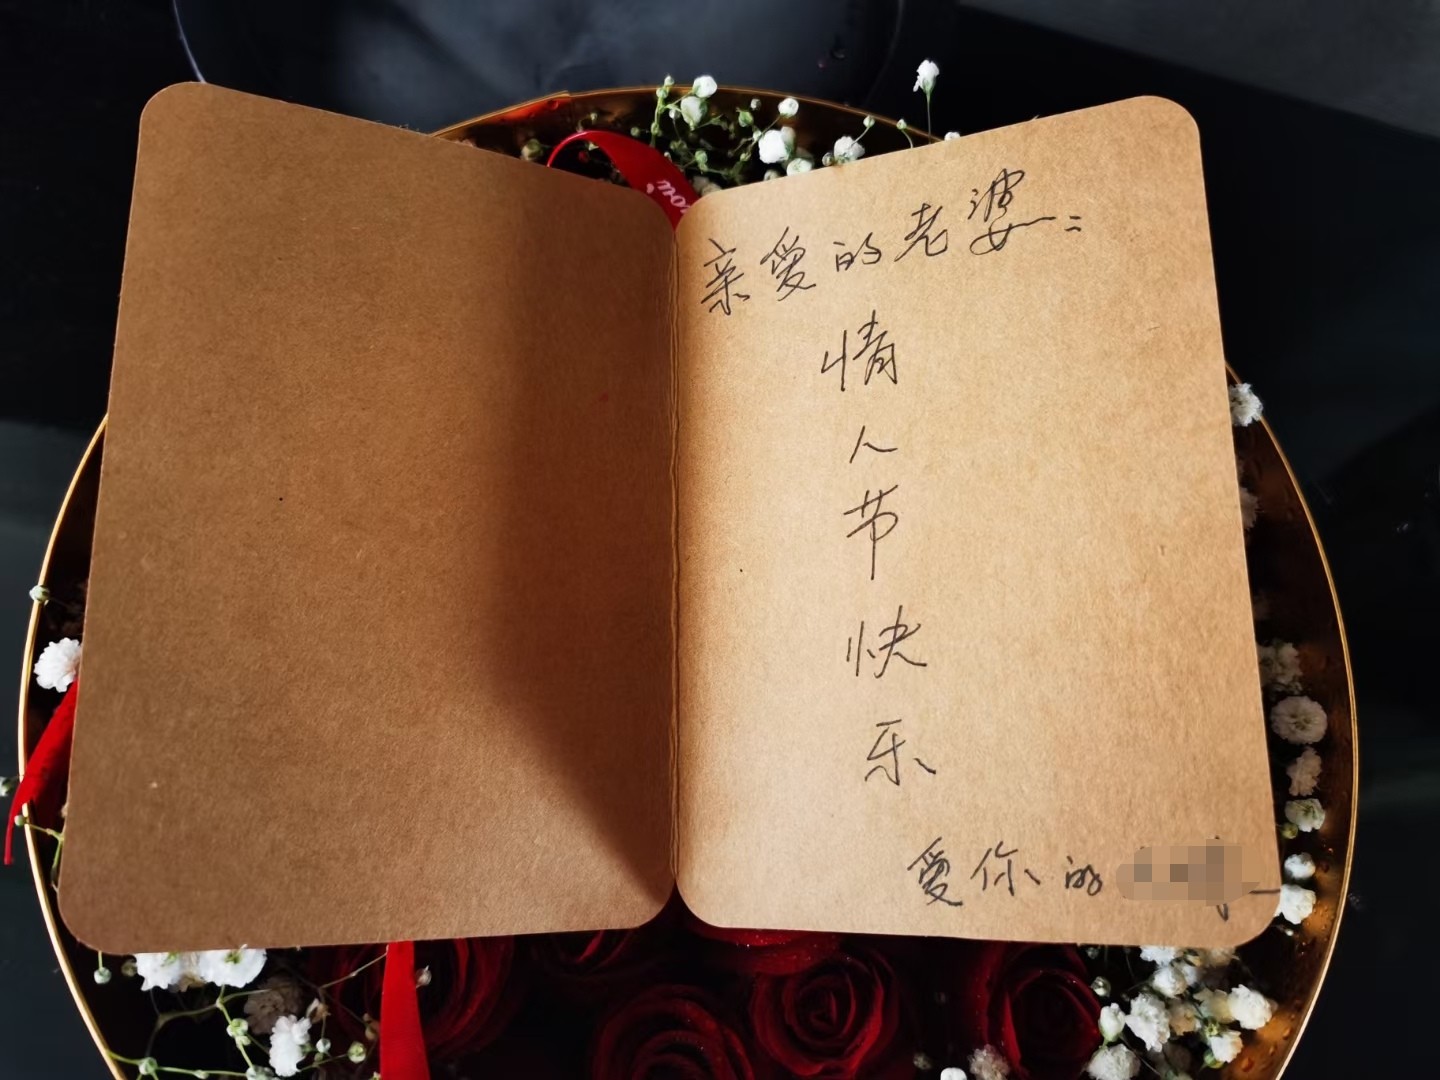 you
亲爱的老婆：
情
人
节
快
乐
爱你的